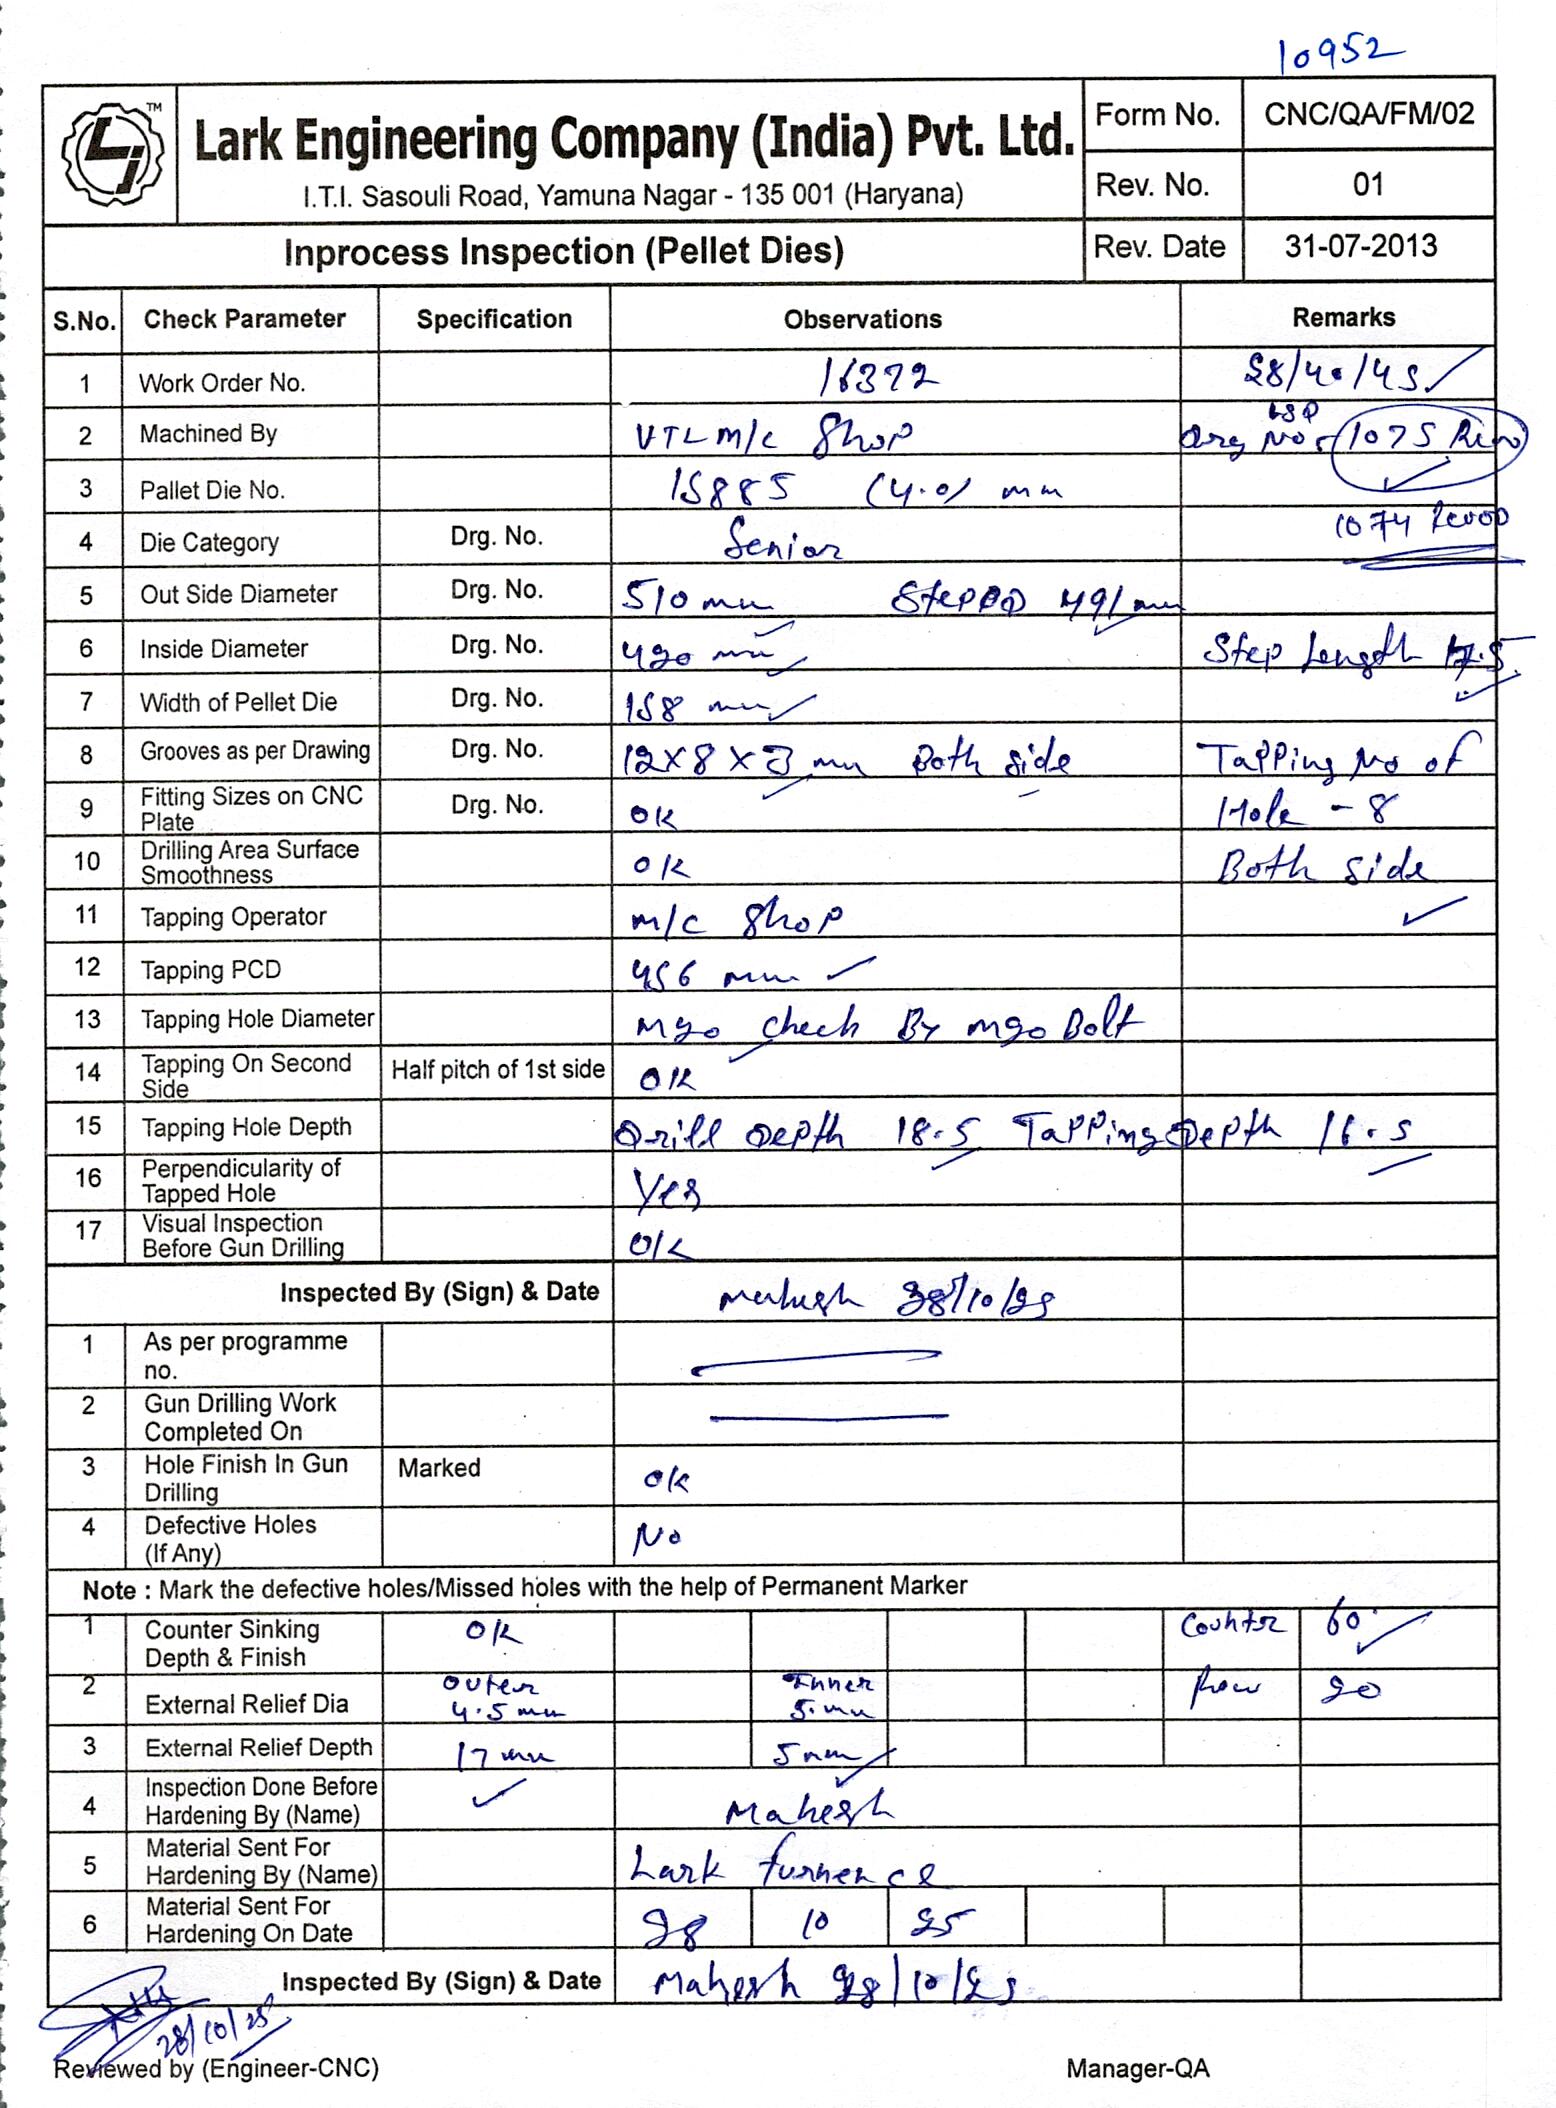 10952
Lark Engineering Company (India) Pvt. Ltd.
TM
I.T.I. Sasouli Road, Yamuna Nagar - 135 001 (Haryana)
Form No. CNC/QA/FM/02
Rev. No. 01
Inprocess Inspection (Pellet Dies) Rev. Date 31-07-2013
S.No. Check Parameter Specification Observations Remarks
1 Work Order No. 16372 28/40/45
2 Machined By VTL M/C Shop Drg No. 1075
3 Pallet Die No. 15885 (4.0) mm
4 Die Category Drg. No. Senior 1074 Rev00
5 Out Side Diameter Drg. No. 510 mm Step OD 491 mm
6 Inside Diameter Drg. No. 420 mm Step Length 17.5
7 Width of Pellet Die Drg. No. 158 mm
8 Grooves as per Drawing Drg. No. 12X8X3 mm Both side Tapping No of
9 Fitting Sizes on CNC Plate Drg. No. OK Hole - 8
10 Drilling Area Surface Smoothness OK Both side
11 Tapping Operator M/C Shop
12 Tapping PCD 456 mm
13 Tapping Hole Diameter M20 check By M20 Bolt
14 Tapping On Second Side Half pitch of 1st side OK
15 Tapping Hole Depth Drill Depth 18.5 Tapping Depth 16.5
16 Perpendicularity of Tapped Hole Yes
17 Visual Inspection Before Gun Drilling OK
Inspected By (Sign) & Date Mahesh 28/10/25
1 As per programme no.
2 Gun Drilling Work Completed On
3 Hole Finish In Gun Drilling Marked OK
4 Defective Holes (If Any) No
Note : Mark the defective holes/Missed holes with the help of Permanent Marker
1 Counter Sinking Depth & Finish OK Counter 60°
2 External Relief Dia Outer 4.5 mm Inner 5. mm Row 20
3 External Relief Depth 17 mm 5 mm
4 Inspection Done Before Hardening By (Name) Mahesh
5 Material Sent For Hardening By (Name) Lark furnence
6 Material Sent For Hardening On Date 28 10 25
Inspected By (Sign) & Date Mahesh 28/10/25
28/10/25
Reviewed by (Engineer-CNC) Manager-QA